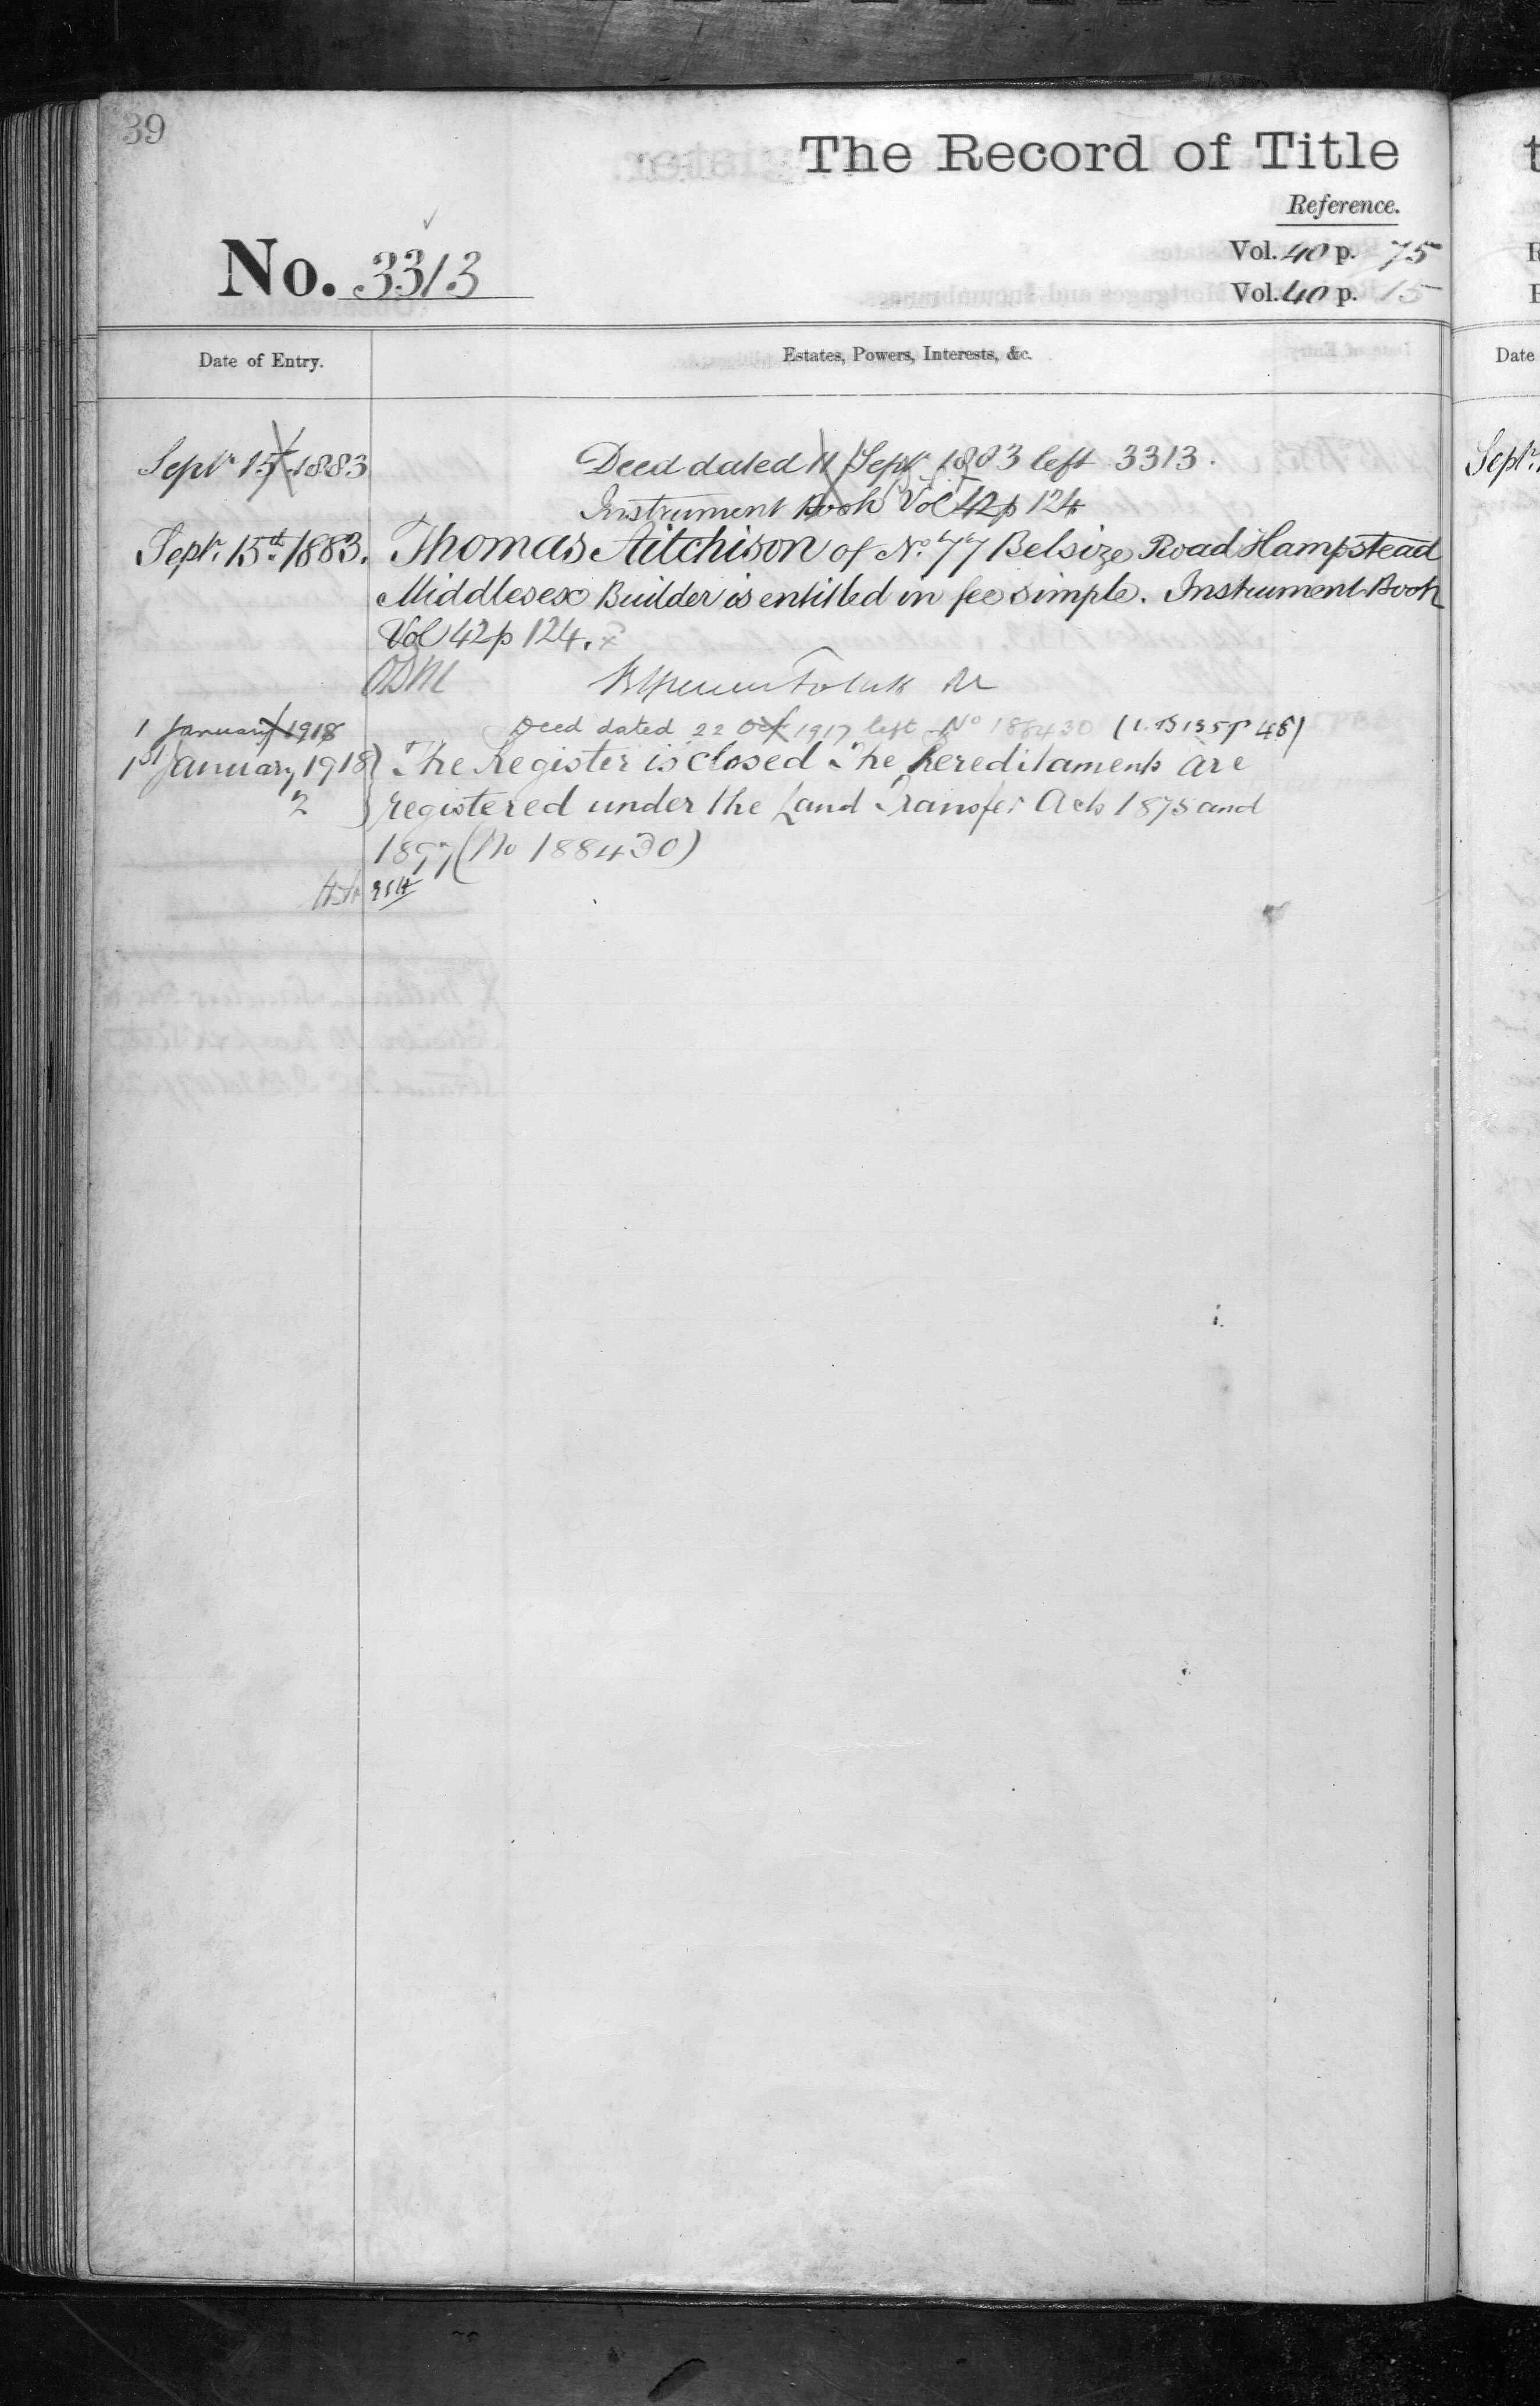 39
The Record of Title
Reference.
No. 3313
Vol. 40 p. 75
Vol. 40 p. 15
Date of Entry.
Estates, Powers, Interests, &c.
Date
Septr 15 1883
Deed dated 11 Septr 1883 left 3313.
Instrument Book Vol 42 p 124
Septr. 15th 1883.
Thomas Aitchison of No. 77 Belsize Road Hampstead
Middlesex Builder is entitled in fee simple. Instrument Book
Vol 42 p 124.
1 January 1918
Deed dated 22 Oct 1917 left No 188430 (I.B 135 P 48)
1st January 1918
The Register is closed The hereditaments are
2
registered under the Land Transfer Acts 1875 and
1897 (No 188430)
Septr.